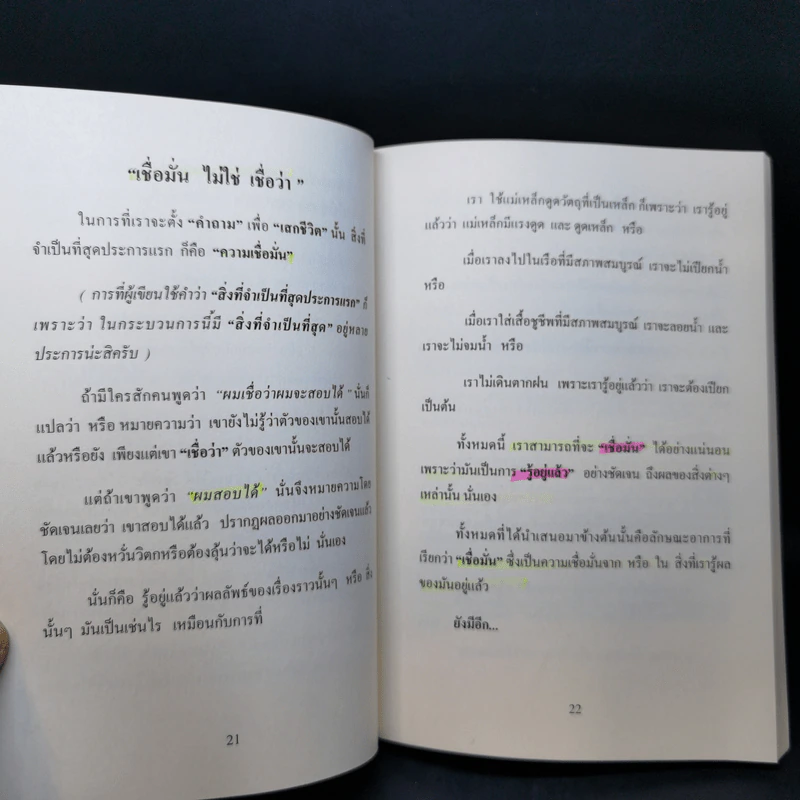 “เชื่อมั่น ไม่ใช่ เชื่อว่า ”
ในการที่เราจะตั้ง “คำถาม” เพื่อ “เสกชีวิต” นั้น สิ่งที่
จำเป็นที่สุดประการแรก ก็คือ “ความเชื่อมั่น”
( การที่ผู้เขียนใช้คำว่า “สิ่งที่จำเป็นที่สุดประการแรก” ก็
เพราะว่า ในกระบวนการนี้มี “สิ่งที่จำเป็นที่สุด” อยู่หลาย
ประการน่ะสิครับ )
ถ้ามีใครสักคนพูดว่า “ผมเชื่อว่าผมจะสอบได้ ” นั่นก็
แปลว่า หรือ หมายความว่า เขายังไม่รู้ว่าตัวของเขานั้นสอบได้
แล้วหรือยัง เพียงแต่เขา “เชื่อว่า” ตัวของเขานั้นจะสอบได้
แต่ถ้าเขาพูดว่า “ผมสอบได้” นั่นจึงหมายความโดย
ชัดเจนเลยว่า เขาสอบได้แล้ว ปรากฏผลออกมาอย่างชัดเจนแล้ว
โดยไม่ต้องหวั่นวิตกหรือต้องลุ้นว่าจะได้หรือไม่ นั่นเอง
นั่นก็คือ รู้อยู่แล้วว่าผลลัพธ์ของเรื่องราวนั้นๆ หรือ สิ่ง
นั้นๆ มันเป็นเช่นไร เหมือนกับการที่
21
เรา ใช้แม่เหล็กดูดวัตถุที่เป็นเหล็ก ก็เพราะว่า เรารู้อยู่
แล้วว่า แม่เหล็กมีแรงดูด และ ดูดเหล็ก หรือ
เมื่อเราลงไปในเรือที่มีสภาพสมบูรณ์ เราจะไม่เปียกน้ำ
หรือ
เมื่อเราใส่เสื้อชูชีพที่มีสภาพสมบูรณ์ เราจะลอยน้ำ และ
เราจะไม่จมน้ำ หรือ
เราไม่เดินตากฝน เพราะเรารู้อยู่แล้วว่า เราจะต้องเปียก
เป็นต้น
ทั้งหมดนี้ เราสามารถที่จะ “เชื่อมั่น” ได้อย่างแน่นอน
เพราะว่ามันเป็นการ “รู้อยู่แล้ว” อย่างชัดเจน ถึงผลของสิ่งต่างๆ
เหล่านั้น นั่นเอง
ทั้งหมดที่ได้นำเสนอมาข้างต้นนั้นคือลักษณะอาการที่
เรียกว่า “เชื่อมั่น” ซึ่งเป็นความเชื่อมั่นจาก หรือ ใน สิ่งที่เรารู้ผล
ของมันอยู่แล้ว
ยังมีอีก...
22